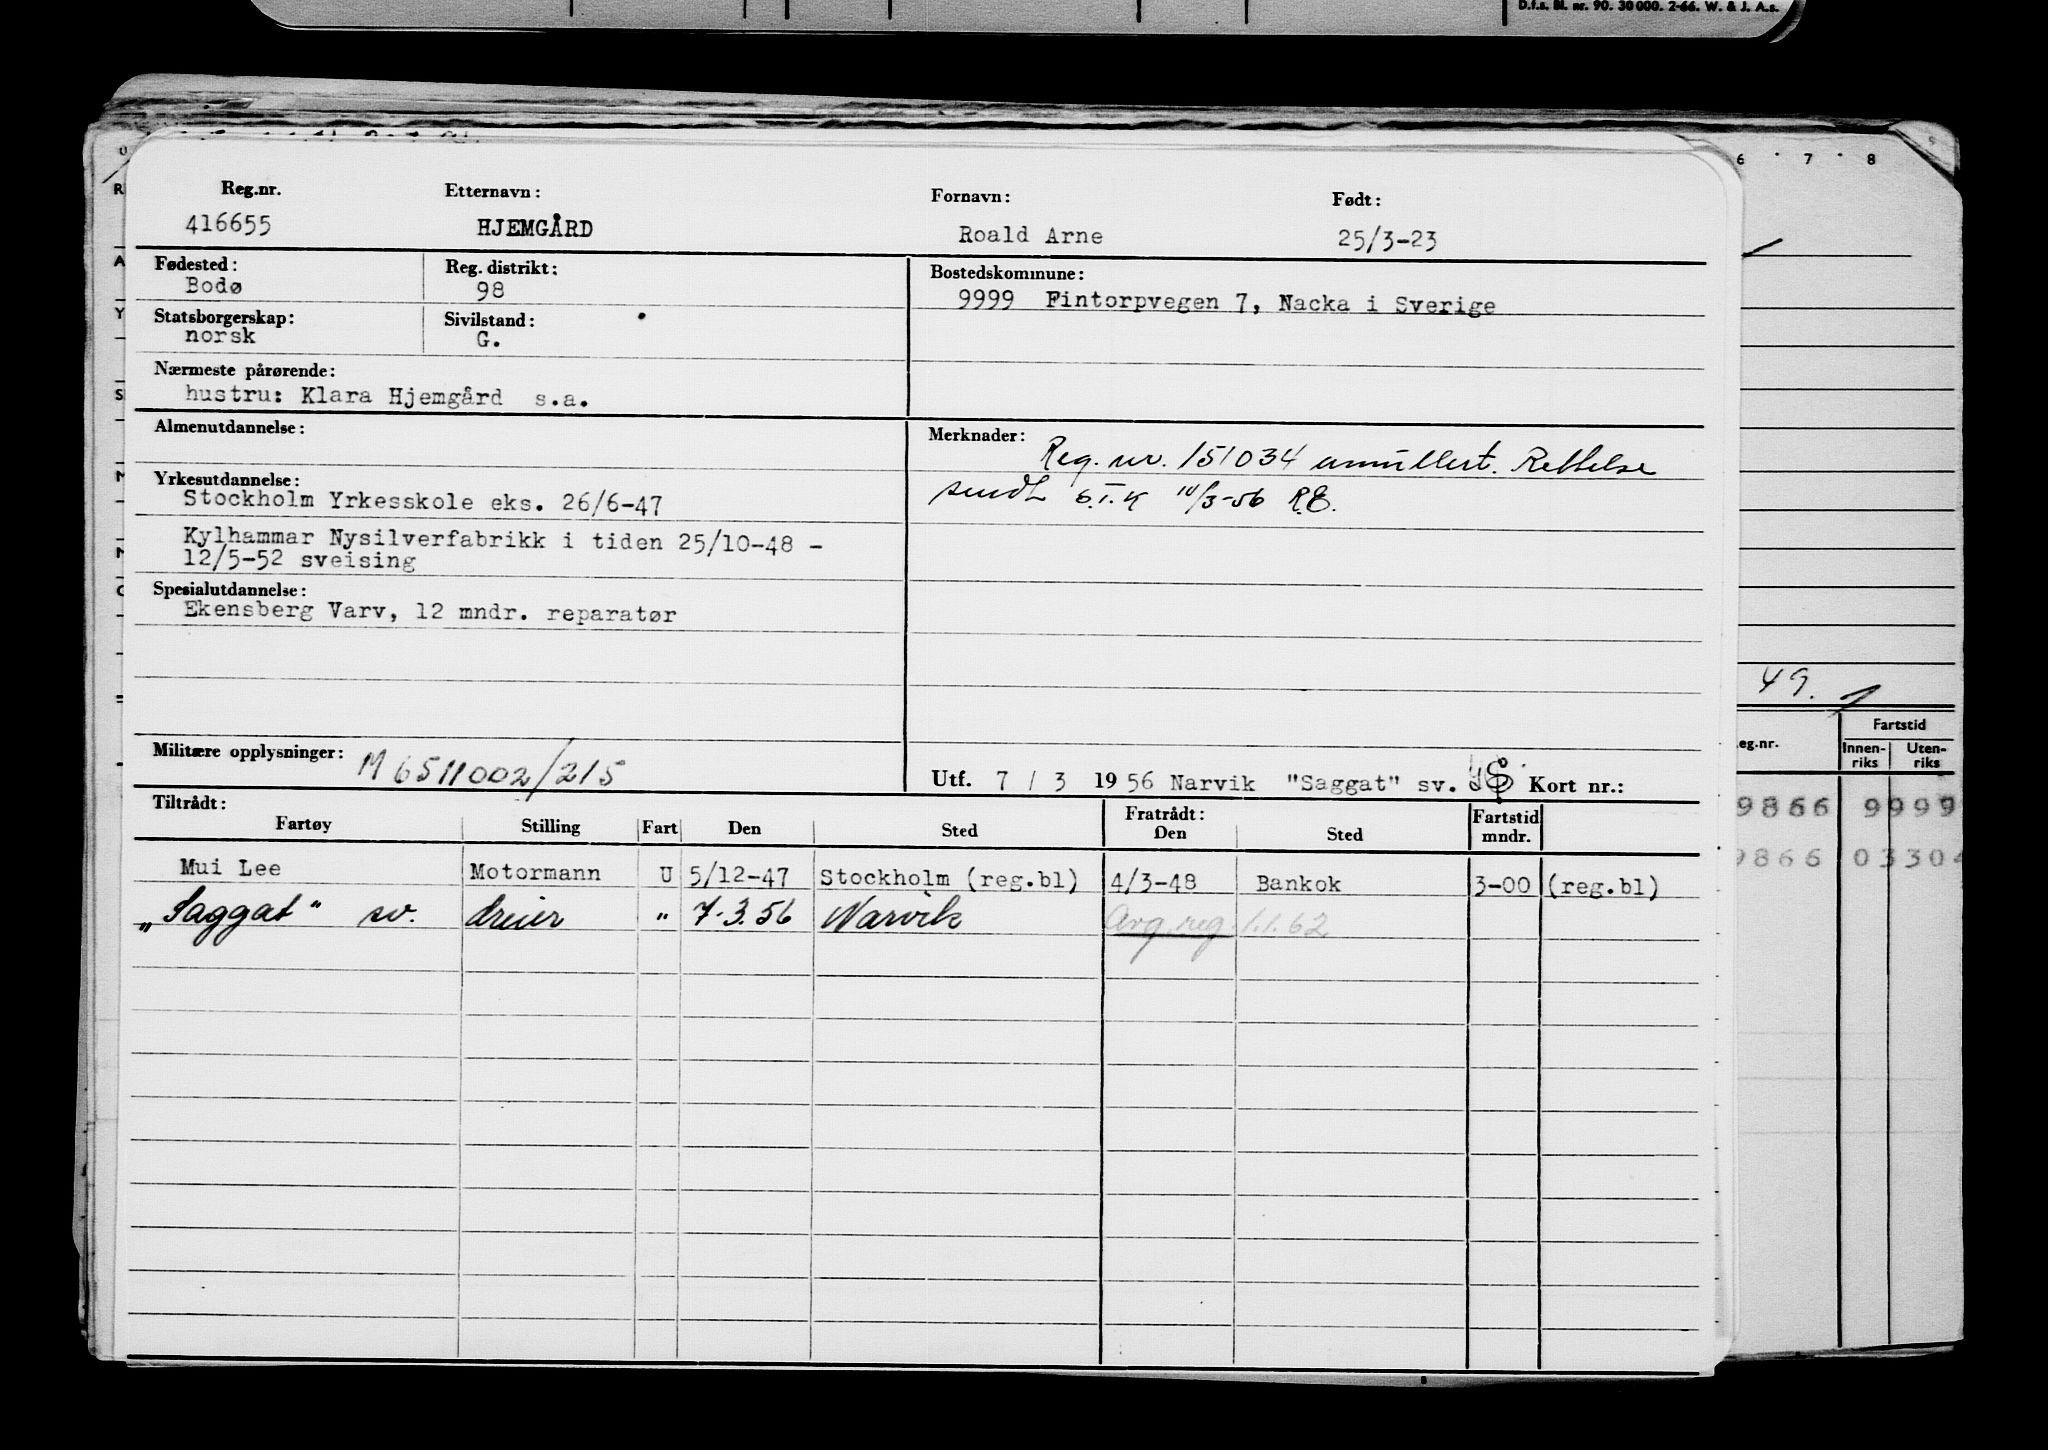 D.f.s. Bl. nr. 90. 30 000. 2-66. W. & J. A.s.
6 7 8
Reg.nr. Etternavn: Fornavn: Født:
416655 HJEMGÅRD Roald Arne 25/3-23
Fødested: Reg. distrikt: Bostedskommune:
Bodø 98 9999 Fintorpvegen 7, Nacka i Sverige
Statsborgerskap: Sivilstand:
norsk G.
Nærmeste pårørende:
hustru: Klara Hjemgård s.a.
Almenutdannelse: Merknader:
Reg. nr. 151034 annullert. Rettelse
sendt 10/3-56 R.E.
Yrkesutdannelse:
Stockholm Yrkesskole eks. 26/6-47
Kylhammar Nysilverfabrikk i tiden 25/10-48 -
12/5-52 sveising
Spesialutdannelse:
Ekensberg Varv, 12 mndr. reparatør
49.
Militære opplysninger: M 6511002/215
Utf. 7 / 3 1956 Narvik "Saggat" sv. Kort nr.:
Tiltrådt: Fratrådt:
Fartøy Stilling Fart Den Sted Den Sted Fartstid mndr.
Mui Lee Motormann U 5/12-47 Stockholm (reg.bl) 4/3-48 Bankok 3-00 (reg.bl)
„Saggat" sv. dreier " 7.3.56 Narvik Avg. reg. 1.1.62
eg.nr. Fartstid
Innen-riks Uten-riks
9866 9999
9866 0330